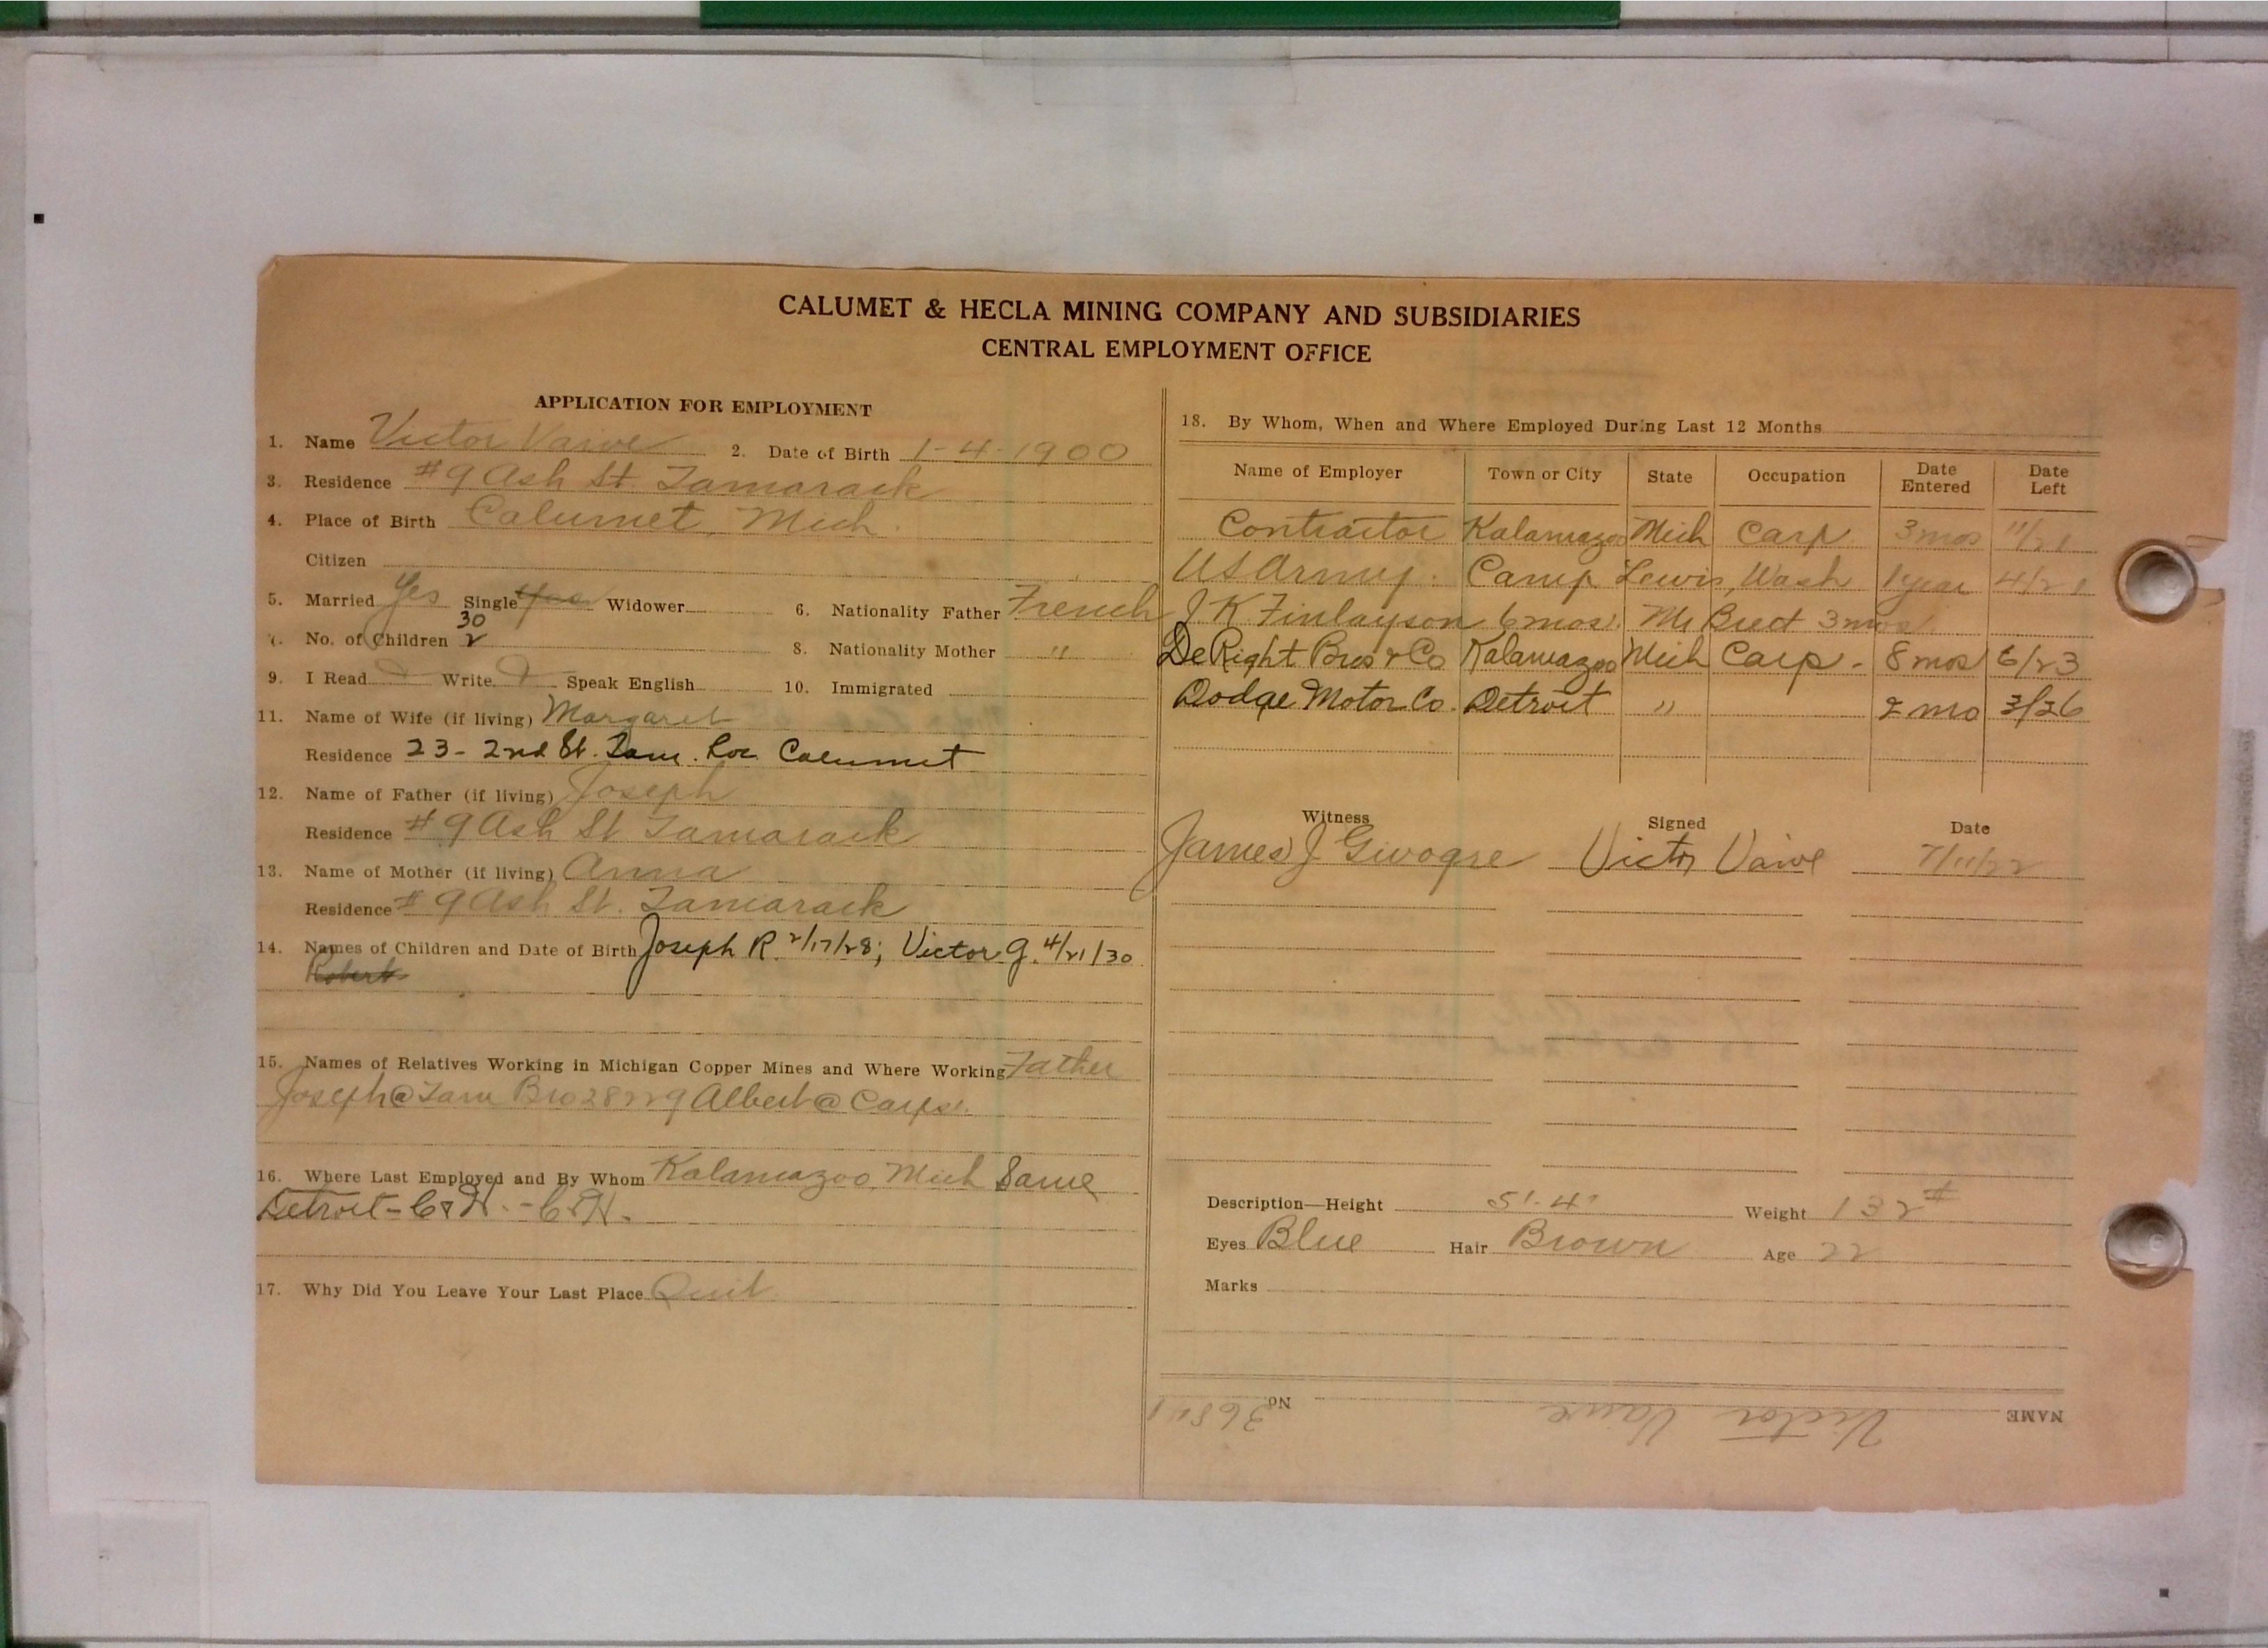 CALUMET & HECLA MINING COMPANY AND SUBSIDIARIES
CENTRAL EMPLOYMENT OFFICE
APPLICATION FOR EMPLOYMENT
1. Name Victor Vaive 2. Date of Birth 1-4-1900
3. Residence #9 Ash St. Tamarack
4. Place of Birth Calumet, Mich.
Citizen
5. Married Yes Single Yes Widower 6. Nationality Father French
30
7. No. of Children 2 8. Nationality Mother "
9. I Read Write Speak English 10. Immigrated
11. Name of Wife (if living) Margaret
Residence 23 - 2nd St. Tam. Loc. Calumet
12. Name of Father (if living) Joseph
Residence #9 Ash St Tamarack
13. Name of Mother (if living) Anna
Residence #9 Ash St. Tamarack
14. Names of Children and Date of Birth Joseph R. 2/17/28; Victor G. 4/21/30
Robert
15. Names of Relatives Working in Michigan Copper Mines and Where Working Father
Joseph @ Tam Bro Albert @ Carps.
16. Where Last Employed and By Whom Kalamazoo, Mich Same
Detroit - C&H. - C&H.
17. Why Did You Leave Your Last Place Quit
18. By Whom, When and Where Employed During Last 12 Months
Name of Employer Town or City State Occupation Date Entered Date Left
Contractor Kalamazoo Mich Carp. 3 mos 11/21
US Army. Camp Lewis, Wash 1 year 4/21
J K Finlayson 6 mos. Mr 3 mos.
DeRight Bros & Co Kalamazoo Mich Carp - 8 mos 6/23
Dodge Motor Co. Detroit " 2 mo 3/26
Witness Signed Date
James J Victor Vaive 7/11/22
Description—Height 5'. 4" Weight 132#
Eyes Blue Hair Brown Age 22
Marks
NAME Victor Vaive No.